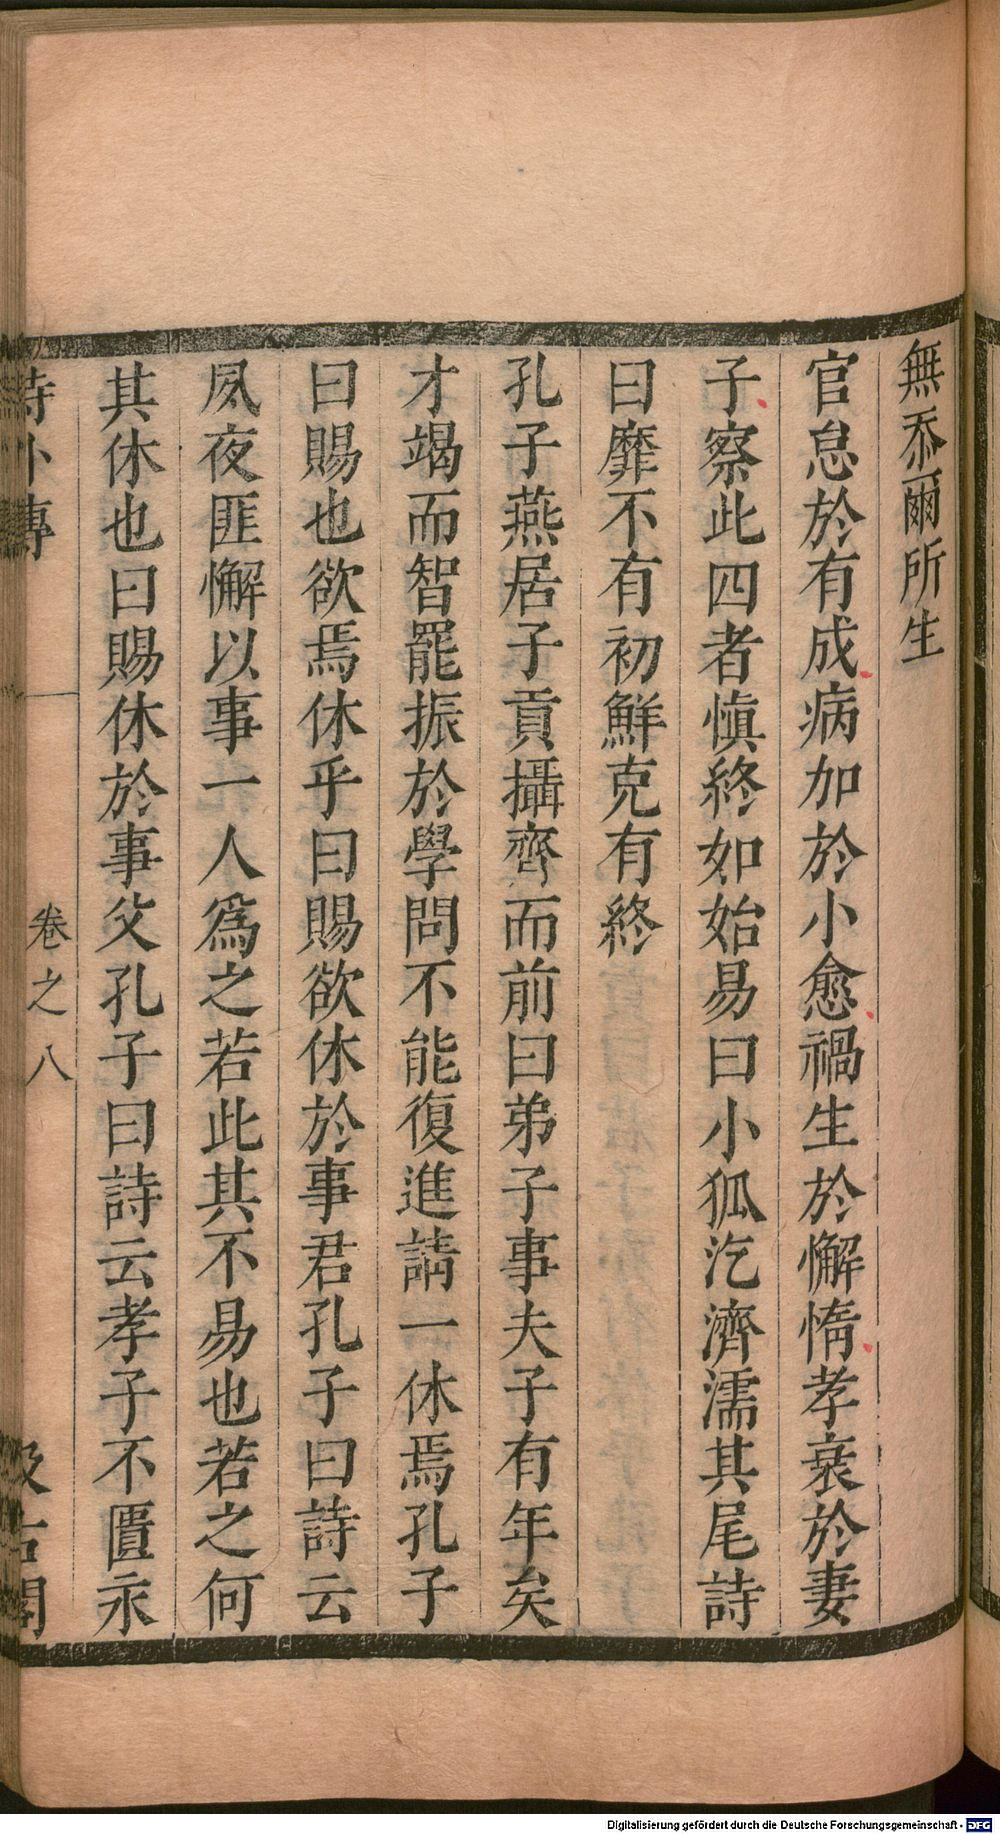 無忝爾所生
官怠於有成病加於小愈禍生於懈惰孝衰於妻
子察此四者愼終如始易曰小狐汔濟濡其尾詩
曰靡不有初鮮克有終
孔子燕居子貢攝齊而前曰弟子事夫子有年矣
才竭而智罷振於學問不能復進請一休焉孔子
曰賜也欲焉休乎曰賜欲休於事君孔子曰詩云
夙夜匪懈以事一人爲之若此其不易也若之何
其休也曰賜休於事父孔子曰詩云孝子不匱永
詩外傳
卷之八
汲古閣
Digitalisierung gefördert durch die Deutsche Forschungsgemeinschaft - DFG